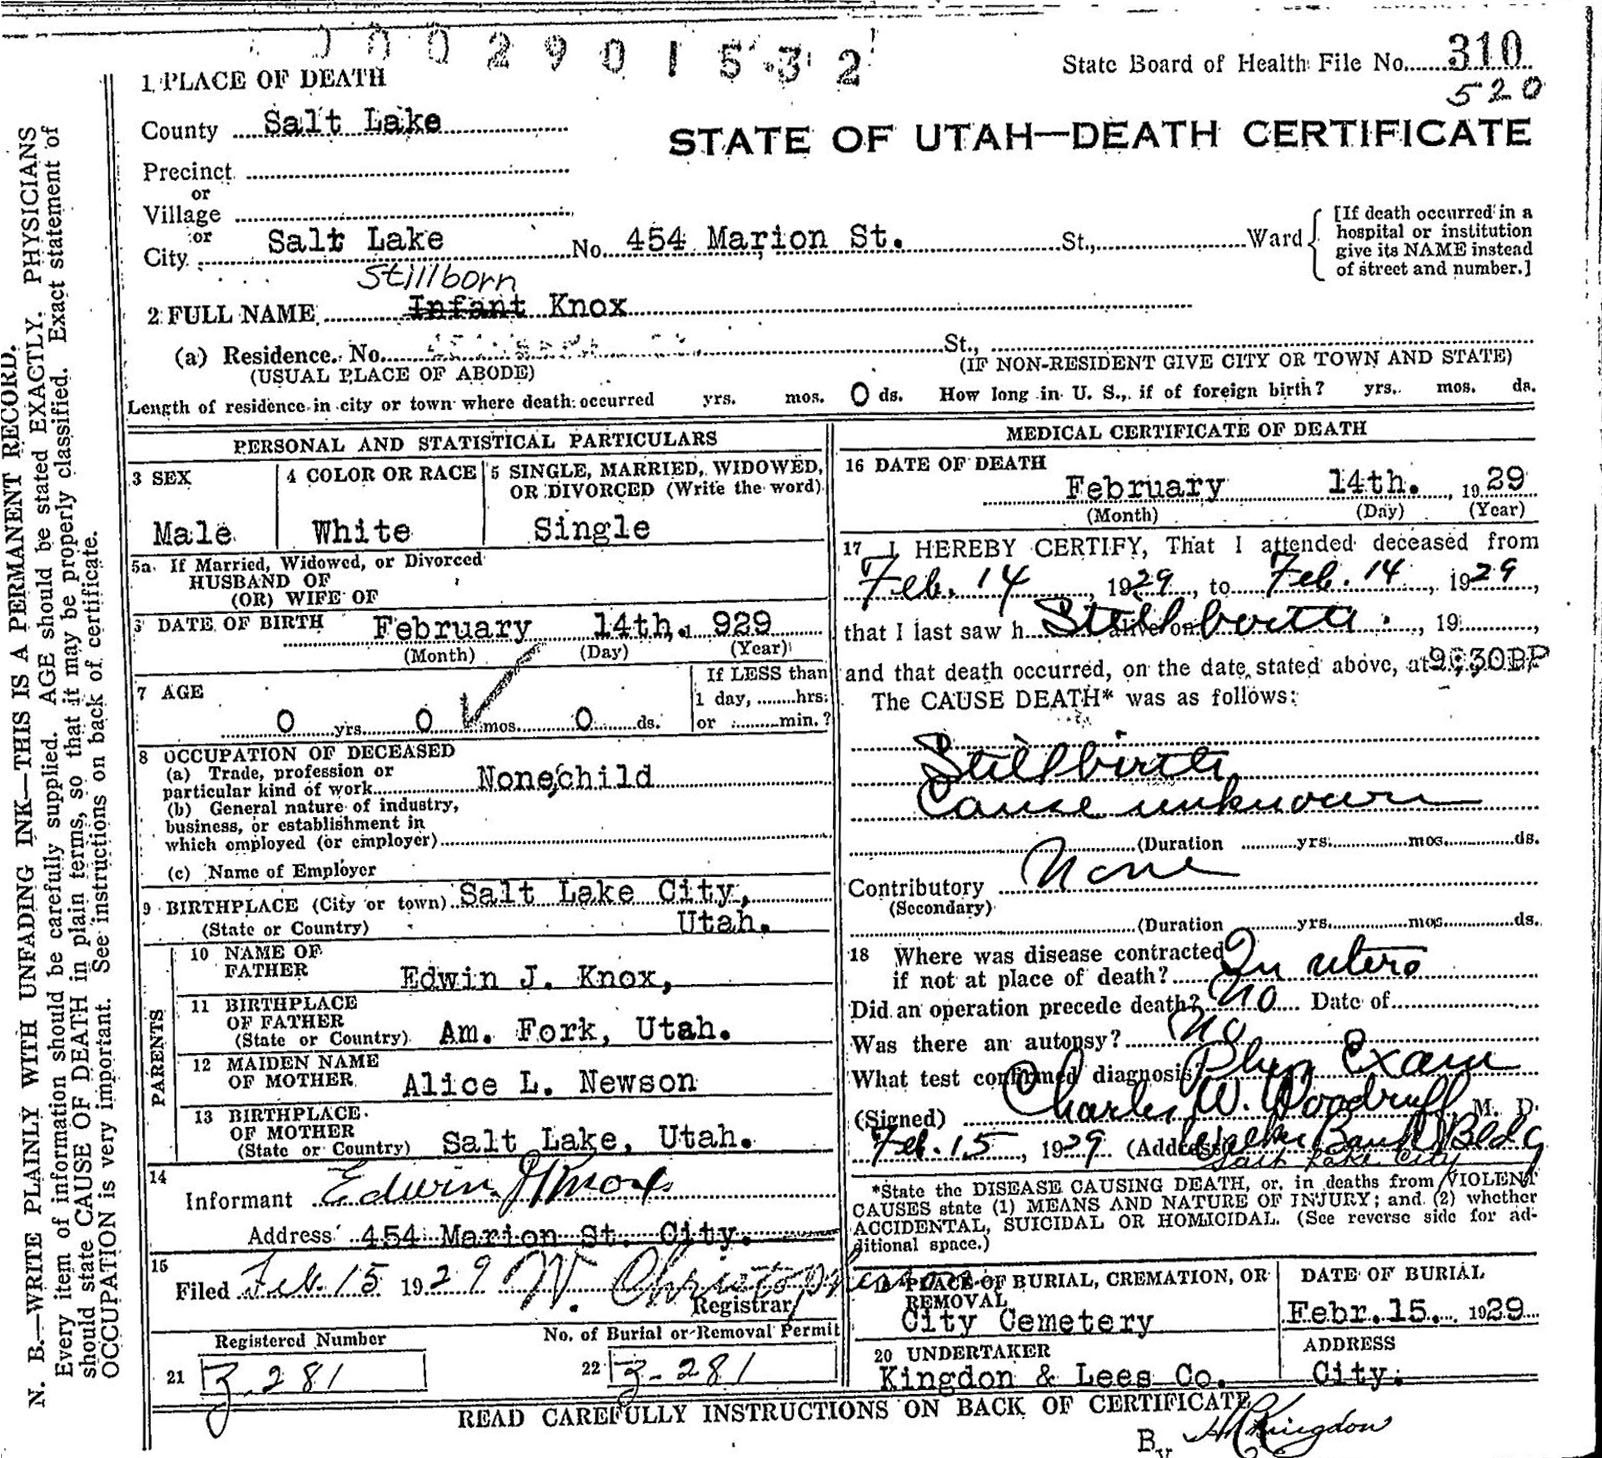 0029015 32
State Board of Health File No. 310
520
1 PLACE OF DEATH
County Salt Lake
STATE OF UTAH—DEATH CERTIFICATE
Precinct
or
Village
or
City Salt Lake No. 454 Marion St. St., Ward
[If death occurred in a
hospital or institution
give its NAME instead
of street and number.]
Stillborn
2 FULL NAME Infant Knox
(a) Residence. No. St.,
(USUAL PLACE OF ABODE) (IF NON-RESIDENT GIVE CITY OR TOWN AND STATE)
Length of residence in city or town where death occurred yrs. mos. 0 ds. How long in U. S., if of foreign birth? yrs. mos. ds.
PERSONAL AND STATISTICAL PARTICULARS
3 SEX
Male
4 COLOR OR RACE
White
5 SINGLE, MARRIED, WIDOWED,
OR DIVORCED (Write the word)
Single
5a If Married, Widowed, or Divorced
HUSBAND OF
(OR) WIFE OF
6 DATE OF BIRTH February 14th. 929
(Month) (Day) (Year)
7 AGE
0 yrs. 0 mos. 0 ds.
If LESS than
1 day, hrs.
or min.?
8 OCCUPATION OF DECEASED
(a) Trade, profession or
particular kind of work None,child
(b) General nature of industry,
business, or establishment in
which employed (or employer)
(c) Name of Employer
9 BIRTHPLACE (City or town) Salt Lake City,
(State or Country) Utah.
PARENTS
10 NAME OF
FATHER Edwin J. Knox,
11 BIRTHPLACE
OF FATHER
(State or Country) Am. Fork, Utah.
12 MAIDEN NAME
OF MOTHER Alice L. Newson
13 BIRTHPLACE
OF MOTHER
(State or Country) Salt Lake, Utah.
14
Informant Edwin J Knox
Address 454 Marion St. City.
15
Filed Feb 15 1929 W. Christopherson
Registrar
Registered Number
21 3.281
No. of Burial or Removal Permit
22 3-281
MEDICAL CERTIFICATE OF DEATH
16 DATE OF DEATH
February 14th. , 1929
(Month) (Day) (Year)
17 I HEREBY CERTIFY, That I attended deceased from
Feb. 14, 1929, to Feb. 14, 1929,
that I last saw h alive on Stillbirth. , 19 ,
and that death occurred, on the date stated above, at 9:30 P
The CAUSE DEATH* was as follows:
Stillbirth
Cause unknown
(Duration yrs. mos. ds.
Contributory None
(Secondary)
(Duration yrs. mos. ds.
18 Where was disease contracted
if not at place of death? In utero
Did an operation precede death? No Date of
Was there an autopsy? No
What test confirmed diagnosis? Phys Exam
(Signed) Charles W. Woodruff, M. D.
Feb. 15, 1929 (Address) Walker Bank Bldg
Salt Lake City
*State the DISEASE CAUSING DEATH, or, in deaths from VIOLENT
CAUSES state (1) MEANS AND NATURE OF INJURY; and (2) whether
ACCIDENTAL, SUICIDAL OR HOMICIDAL. (See reverse side for ad-
ditional space.)
19 PLACE OF BURIAL, CREMATION, OR
REMOVAL
City Cemetery
DATE OF BURIAL
Febr. 15. 1929
20 UNDERTAKER
Kingdon & Lees Co.
ADDRESS
City.
READ CAREFULLY INSTRUCTIONS ON BACK OF CERTIFICATE
By Kingdon
N. B.—WRITE PLAINLY WITH UNFADING INK—THIS IS A PERMANENT RECORD.
Every item of information should be carefully supplied. AGE should be stated EXACTLY. PHYSICIANS
should state CAUSE OF DEATH in plain terms, so that it may be properly classified. Exact statement of
OCCUPATION is very important. See instructions on back of certificate.